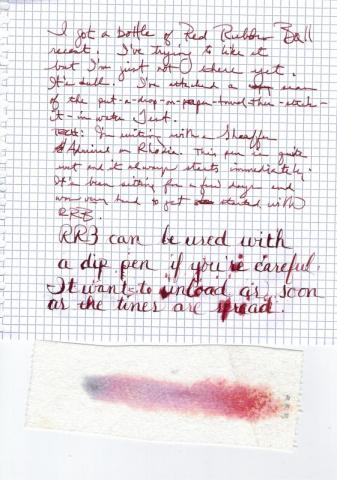 I got a bottle of Red Rubber Ball
recent. I've trying to like it
but I'm just not there yet.
It's dull. I've attached a scan
of the put-a-drop-on-paper-towel-then-stick-
it-in water test.
Tech: I'm writing with a Sheaffer
Admiral on Rhodia. This pen is quite
wet and it always starts immediately.
It's been sitting for a few days and
was very hard to get started with
RRB.
RRB can be used with
a dip pen if you're careful.
It want to unload as soon
as the tines are spread.